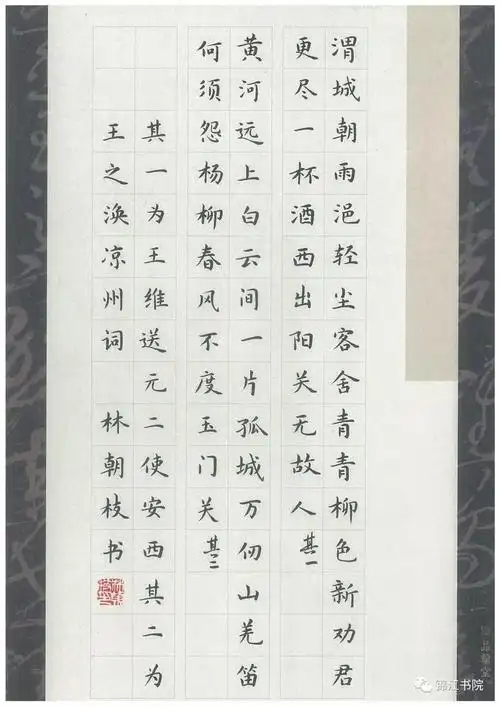 渭城朝雨浥轻尘客舍青青柳色新劝君
更尽一杯酒西出阳关无故人 其一
黄河远上白云间一片孤城万仞山羌笛
何须怨杨柳春风不度玉门关 其二
其一为王维送元二使安西其二为
王之涣凉州词 林朝枝书
锦江书院